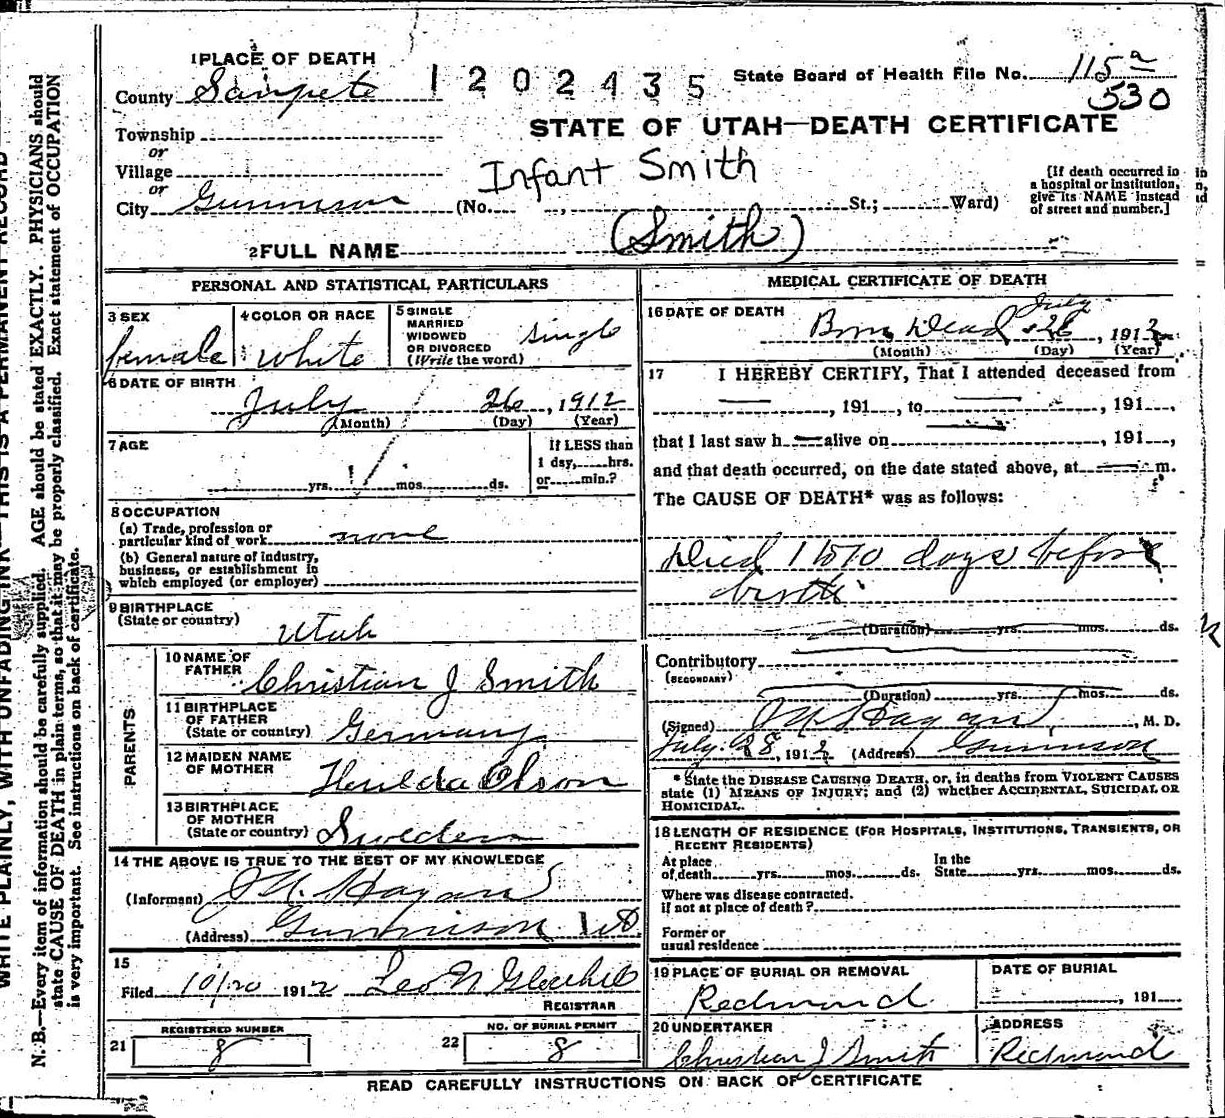 1 PLACE OF DEATH
County Sanpete
1202435
State Board of Health File No. 115
530
STATE OF UTAH—DEATH CERTIFICATE
Township
or
Village
or
City Gunnison (No. St.; Ward)
Infant Smith
[If death occurred in
a hospital or institution,
give its NAME instead
of street and number.]
2 FULL NAME (Smith)
PERSONAL AND STATISTICAL PARTICULARS
3 SEX
female
4 COLOR OR RACE
white
5 SINGLE
MARRIED
WIDOWED
OR DIVORCED
(Write the word)
single
6 DATE OF BIRTH
July 26, 1912
(Month) (Day) (Year)
7 AGE
yrs. mos. ds.
If LESS than
1 day, hrs.
or min.?
8 OCCUPATION
(a) Trade, profession or
particular kind of work none
(b) General nature of industry,
business, or establishment in
which employed (or employer)
9 BIRTHPLACE
(State or country)
Utah
PARENTS
10 NAME OF
FATHER
Christian J Smith
11 BIRTHPLACE
OF FATHER
(State or country) Germany
12 MAIDEN NAME
OF MOTHER
Olson
13 BIRTHPLACE
OF MOTHER
(State or country) Sweden
14 THE ABOVE IS TRUE TO THE BEST OF MY KNOWLEDGE
(Informant) Hagan
(Address) Gunnison
15
Filed 10/20 1912 Leo
REGISTRAR
REGISTERED NUMBER
21 8
NO. OF BURIAL PERMIT
22 8
MEDICAL CERTIFICATE OF DEATH
16 DATE OF DEATH
July
Born Dead 26, 1912
(Month) (Day) (Year)
17 I HEREBY CERTIFY, That I attended deceased from
, 191 , to , 191 ,
that I last saw h alive on , 191 ,
and that death occurred, on the date stated above, at m.
The CAUSE OF DEATH* was as follows:
Died 1 to 10 days before
birth
(Duration) yrs. mos. ds.
Contributory
(SECONDARY)
(Duration) yrs. mos. ds.
(Signed) Hagan, M. D.
July 28, 1912 (Address) Gunnison
* State the DISEASE CAUSING DEATH, or, in deaths from VIOLENT CAUSES
state (1) MEANS OF INJURY; and (2) whether ACCIDENTAL, SUICIDAL OR
HOMICIDAL.
18 LENGTH OF RESIDENCE (FOR HOSPITALS, INSTITUTIONS, TRANSIENTS, OR
RECENT RESIDENTS)
At place
of death yrs. mos. ds.
In the
State yrs. mos. ds.
Where was disease contracted.
if not at place of death?
Former or
usual residence
19 PLACE OF BURIAL OR REMOVAL
Redmond
DATE OF BURIAL
, 191
20 UNDERTAKER
Christian J Smith
ADDRESS
Redmond
READ CAREFULLY INSTRUCTIONS ON BACK OF CERTIFICATE
WRITE PLAINLY, WITH UNFADING INK—THIS IS A PERMANENT RECORD
N. B.—Every item of information should be carefully supplied. AGE should be stated EXACTLY. PHYSICIANS should
state CAUSE OF DEATH in plain terms, so that it may be properly classified. Exact statement of OCCUPATION
is very important. See instructions on back of certificate.